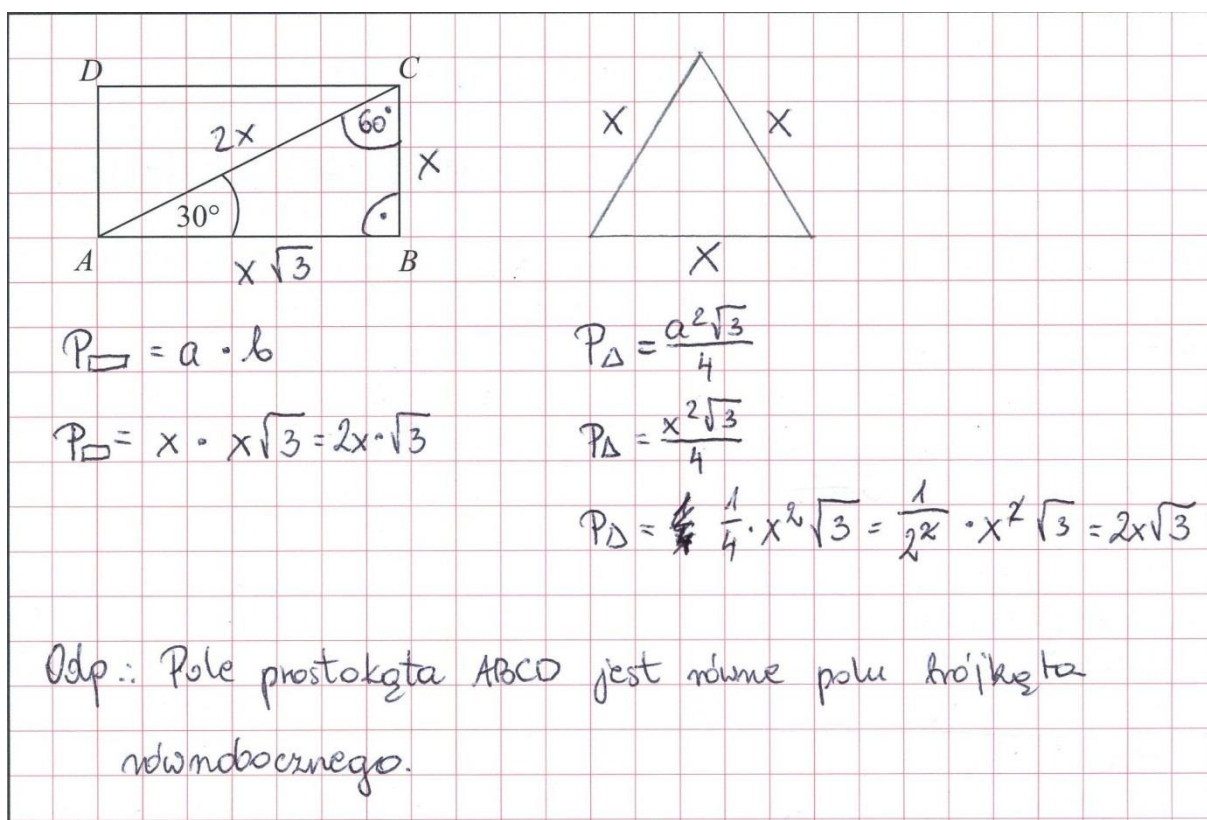 D C
2x 60° x
30°
A x√3 B
x x
x
P▭ = a · b
P▭ = x · x√3 = 2x·√3
P△ = a²√3/4
P△ = x²√3/4
P△ = 1/4 · x²√3 = 1/2² · x²√3 = 2x√3
Odp.: Pole prostokąta ABCD jest równe polu trójkąta
równobocznego.